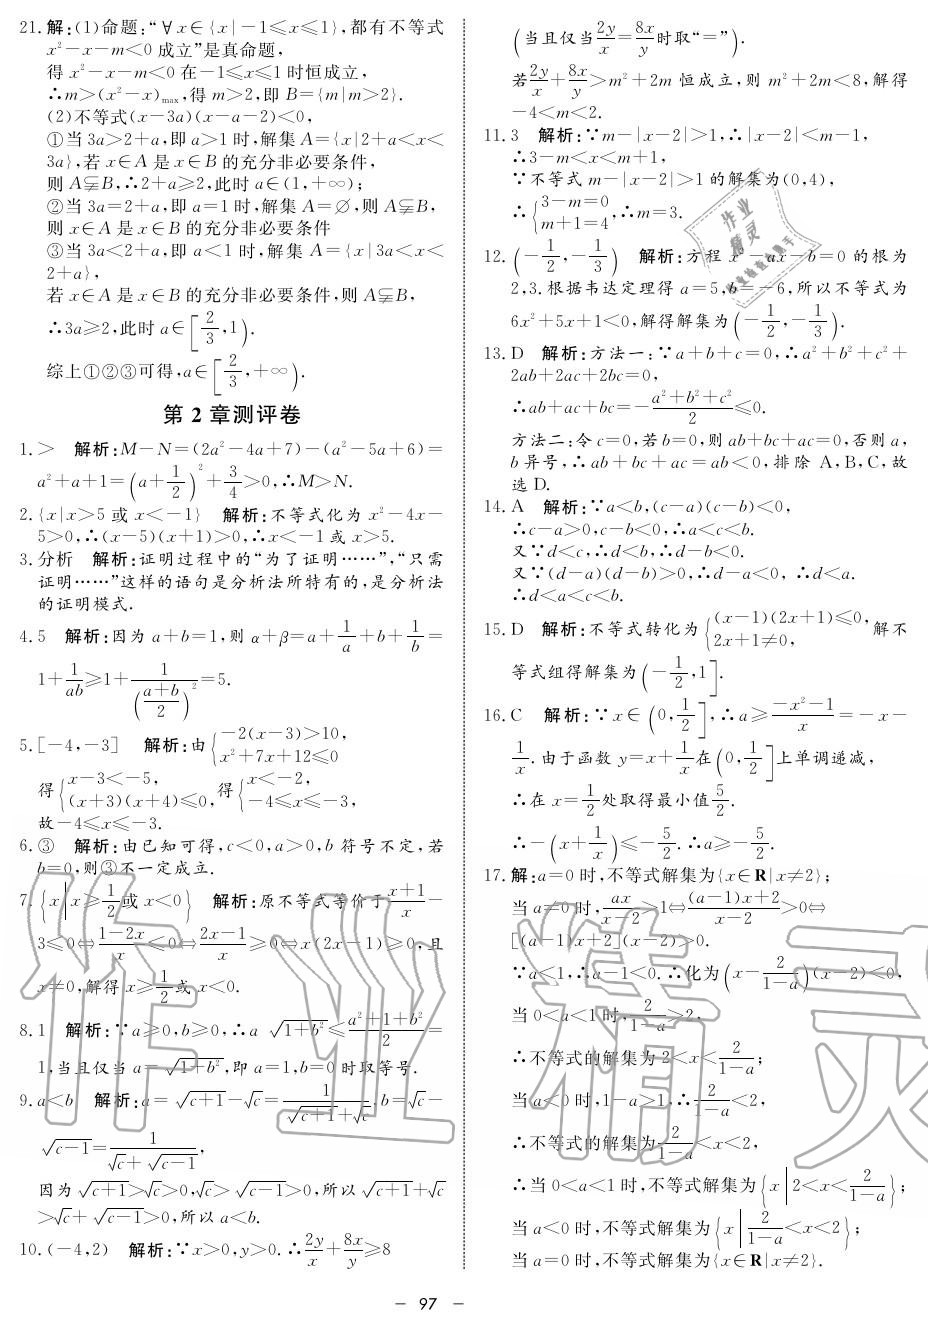 21.解:(1)命题:“∀x∈{x|-1≤x≤1},都有不等式
x²-x-m<0 成立”是真命题,
得 x²-x-m<0 在-1≤x≤1 时恒成立,
∴m>(x²-x)max,得 m>2,即 B={m|m>2}.
(2)不等式(x-3a)(x-a-2)<0,
①当 3a>2+a,即 a>1 时,解集 A={x|2+a<x<
3a},若 x∈A 是 x∈B 的充分非必要条件,
则 A⫋B,∴2+a≥2,此时 a∈(1,+∞);
②当 3a=2+a,即 a=1 时,解集 A=∅,则 A⫋B,
则 x∈A 是 x∈B 的充分非必要条件
③当 3a<2+a,即 a<1 时,解集 A={x|3a<x<
2+a},
若 x∈A 是 x∈B 的充分非必要条件,则 A⫋B,
∴3a≥2,此时 a∈[2/3,1).
综上①②③可得,a∈[2/3,+∞).
第 2 章测评卷
1.> 解析:M-N=(2a²-4a+7)-(a²-5a+6)=
a²+a+1=(a+1/2)²+3/4>0,∴M>N.
2.{x|x>5 或 x<-1} 解析:不等式化为 x²-4x-
5>0,∴(x-5)(x+1)>0,∴x<-1 或 x>5.
3.分析 解析:证明过程中的“为了证明……”,“只需
证明……”这样的语句是分析法所特有的,是分析法
的证明模式.
4.5 解析:因为 a+b=1,则 α+β=a+1/a+b+1/b=
1+1/ab≥1+1/((a+b)/2)²=5.
5.[-4,-3] 解析:由{-2(x-3)>10, x²+7x+12≤0
得{x-3<-5, (x+3)(x+4)≤0, 得{x<-2, -4≤x≤-3,
故-4≤x≤-3.
6.③ 解析:由已知可得,c<0,a>0,b 符号不定,若
b=0,则③不一定成立.
7.{x|x≥1/2或 x<0} 解析:原不等式等价于(x+1)/x-
3≤0⇔(1-2x)/x≤0⇔(2x-1)/x≥0⇔x(2x-1)≥0,且
x≠0,解得 x≥1/2或 x<0.
8.1 解析:∵a≥0,b≥0,∴a√(1+b²)≤(a²+1+b²)/2=
1,当且仅当 a=√(1+b²),即 a=1,b=0 时取等号.
9.a<b 解析:a=√(c+1)-√c=1/(√(c+1)+√c),b=√c-
√(c-1)=1/(√c+√(c-1)),
因为√(c+1)>√c>0,√c>√(c-1)>0,所以√(c+1)+√c
>√c+√(c-1)>0,所以 a<b.
10.(-4,2) 解析:∵x>0,y>0.∴2y/x+8x/y≥8
(当且仅当2y/x=8x/y时取“=”).
若2y/x+8x/y>m²+2m 恒成立,则 m²+2m<8,解得
-4<m<2.
11.3 解析:∵m-|x-2|>1,∴|x-2|<m-1,
∴3-m<x<m+1,
∵不等式 m-|x-2|>1 的解集为(0,4),
∴{3-m=0 m+1=4,∴m=3.
12.(-1/2,-1/3) 解析:方程 x²-ax-b=0 的根为
2,3.根据韦达定理得 a=5,b=-6,所以不等式为
6x²+5x+1<0,解得解集为(-1/2,-1/3).
13.D 解析:方法一:∵a+b+c=0,∴a²+b²+c²+
2ab+2ac+2bc=0,
∴ab+ac+bc=-(a²+b²+c²)/2≤0.
方法二:令 c=0,若 b=0,则 ab+bc+ac=0,否则 a,
b 异号,∴ab+bc+ac=ab<0,排除 A,B,C,故
选 D.
14.A 解析:∵a<b,(c-a)(c-b)<0,
∴c-a>0,c-b<0,∴a<c<b.
又∵d<c,∴d<b,∴d-b<0.
又∵(d-a)(d-b)>0,∴d-a<0,∴d<a.
∴d<a<c<b.
15.D 解析:不等式转化为{(x-1)(2x+1)≤0, 2x+1≠0, 解不
等式组得解集为(-1/2,1].
16.C 解析:∵x∈(0,1/2],∴a≥(-x²-1)/x=-x-
1/x.由于函数 y=x+1/x在(0,1/2]上单调递减,
∴在 x=1/2处取得最小值5/2.
∴-(x+1/x)≤-5/2.∴a≥-5/2.
17.解:a=0 时,不等式解集为{x∈R|x≠2};
当 a≠0 时,ax/(x-2)>1⇔((a-1)x+2)/(x-2)>0⇔
[(a-1)x+2](x-2)>0.
∵a<1,∴a-1<0.∴化为(x-2/(1-a))(x-2)<0,
当 0<a<1 时,2/(1-a)>2,
∴不等式的解集为 2<x<2/(1-a);
当 a<0 时,1-a>1,∴2/(1-a)<2,
∴不等式的解集为2/(1-a)<x<2,
∴当 0<a<1 时,不等式解集为{x|2<x<2/(1-a)};
当 a<0 时,不等式解集为{x|2/(1-a)<x<2};
当 a=0 时,不等式解集为{x∈R|x≠2}.
— 97 —
作业
精灵
作业精灵